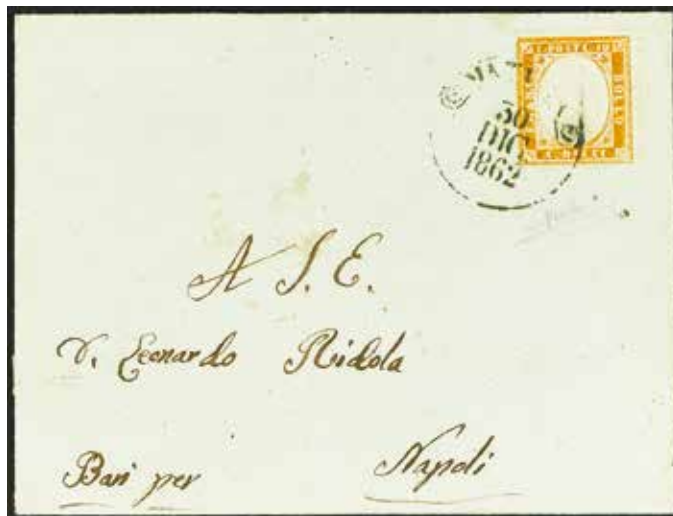 30
DIC
1862
A S. E.
D. Leonardo Ridola
Bari per Napoli